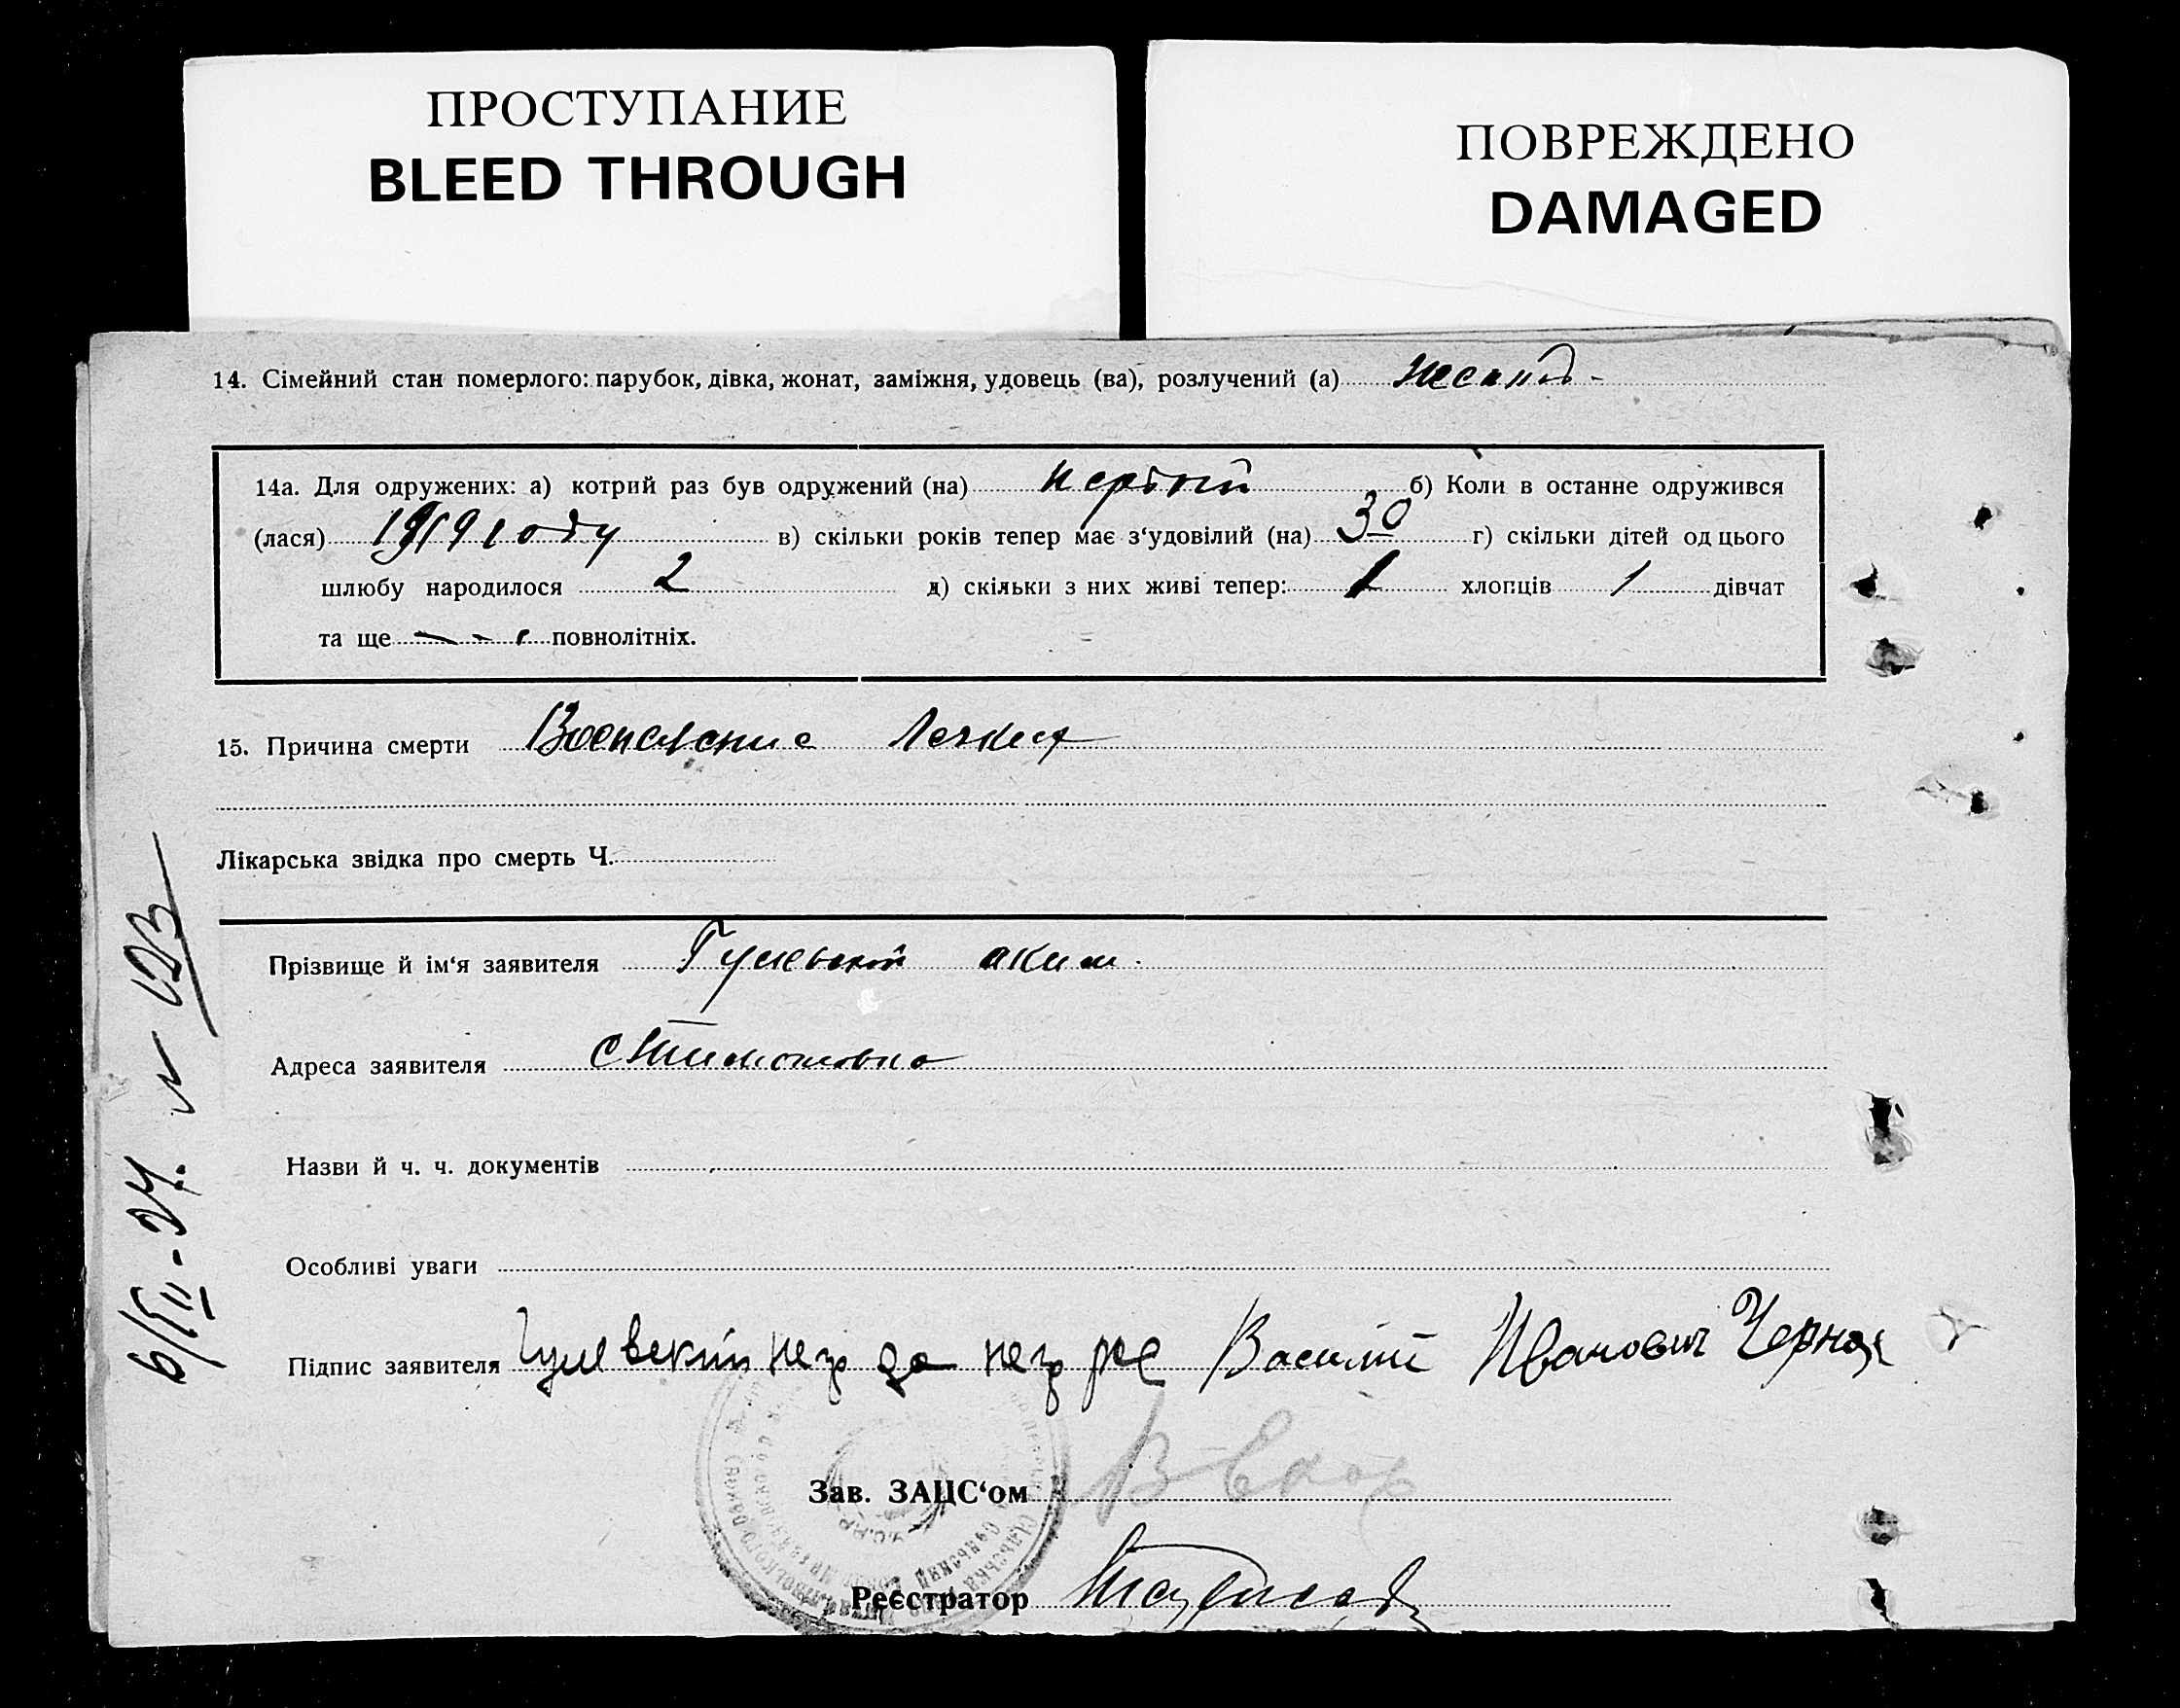 ПРОСТУПАНИЕ
BLEED THROUGH
ПОВРЕЖДЕНО
DAMAGED
14. Сімейний стан померлого: парубок, дівка, жонат, заміжня, удовець (ва), розлучений (а)
14а. Для одружених: а) котрий раз був одружений (на) первый б) Коли в останне одружився
(лася) 1919 году в) скільки років тепер має з‘удовілий (на) 30 г) скільки дітей од цього
шлюбу народилося 2 д) скільки з них живі тепер: 1 хлопців 1 дівчат
та ще повнолітніх.
15. Причина смерти Воспаление Легких
Лікарська звідка про смерть Ч.
Прізвище й ім‘я заявителя аким
Адреса заявителя
Назви й ч. ч. документів
Особливі уваги
Підпис заявителя Василий Иванович
Зав. ЗАЦС‘ом
Реєстратор